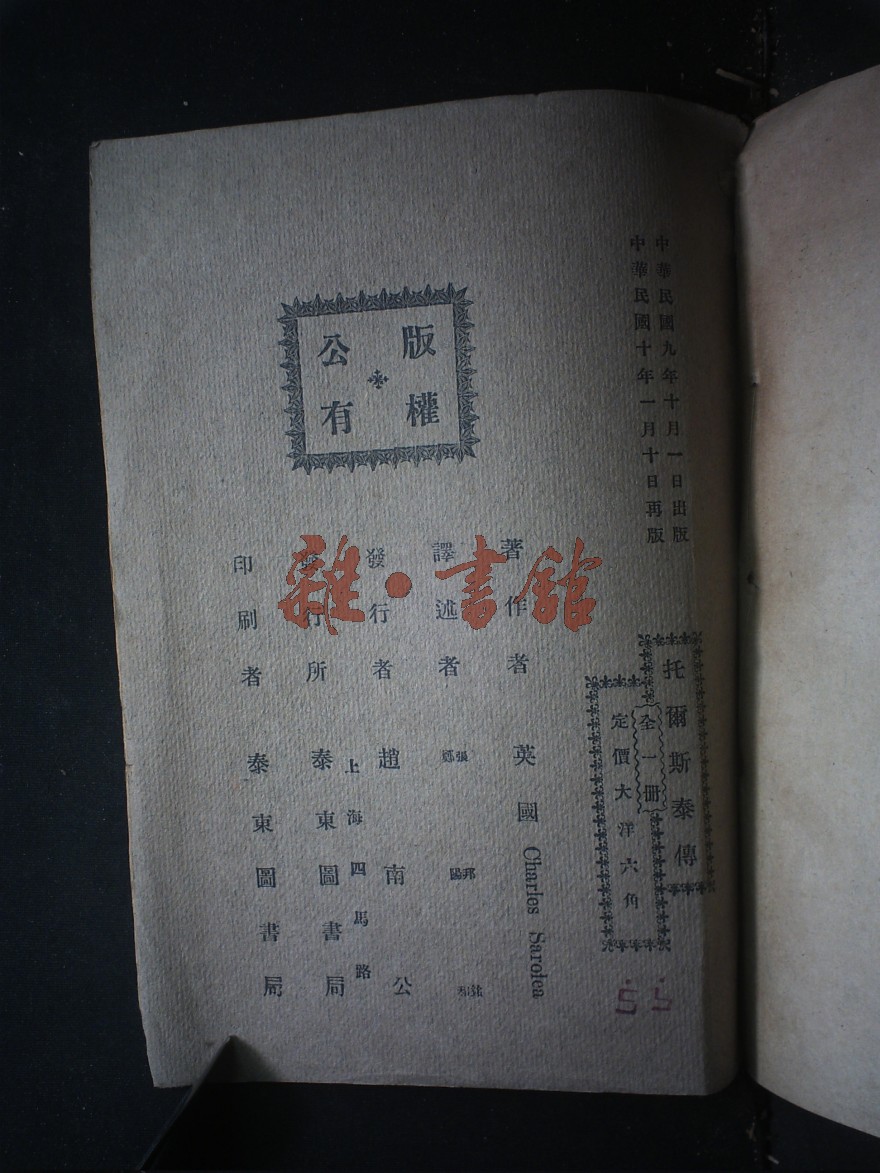 中華民國九年十月一日出版
中華民國十年一月十日再版
托爾斯泰傳
全一冊
定價大洋六角
版權
公有
著作者 英國 Charles Sarolea
譯述者 張邦銘 鄭陽和
發行者 趙南公
上海四馬路
發行所 泰東圖書局
印刷者 泰東圖書局
雜·書館
55